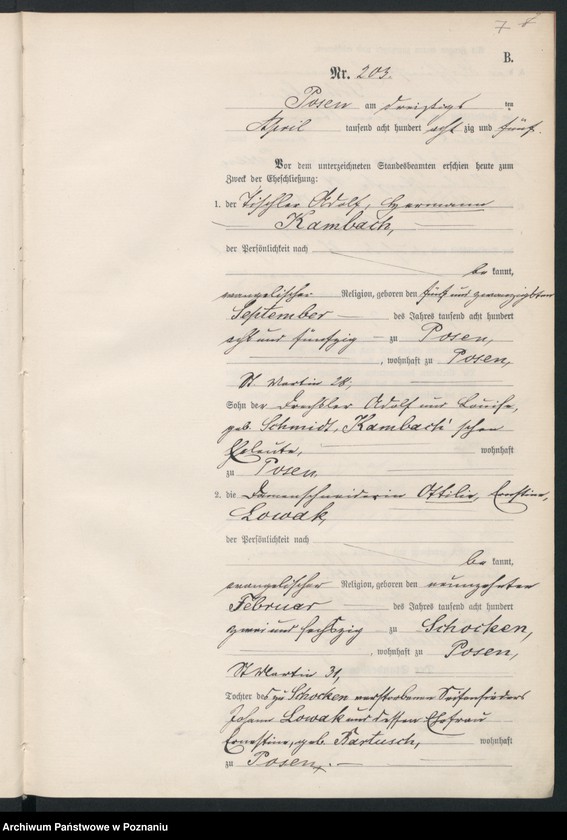 7
B.
Nr. 203.
Posen am dreißigsten
April tausend acht hundert acht zig und fünf.
Vor dem unterzeichneten Standesbeamten erschien heute zum
Zweck der Eheschließung:
1. der Tischler Adolf, Hermann
Kambach,
der Persönlichkeit nach
be kannt,
evangelischer Religion, geboren den fünf und zwanzigsten
September des Jahres tausend acht hundert
acht und fünfzig zu Posen,
, wohnhaft zu Posen,
St Martin 28,
Sohn der Drechsler Adolf und Louise,
geb. Schmidt, Kambach'schen
Eheleute, wohnhaft
zu Posen
2. die Damenschneiderin Ottilie, Ernstine,
Lowak,
der Persönlichkeit nach
be kannt,
evangelischer Religion, geboren den neunzehnten
Februar des Jahres tausend acht hundert
zwei und sechszig zu Schocken,
, wohnhaft zu Posen,
St Martin 31,
Tochter des zu Schocken verstorbenen Seifensieders
Johann Lowak und dessen Ehefrau
Ernestine, geb. Bartusch, wohnhaft
zu Posen.
Archiwum Państwowe w Poznaniu